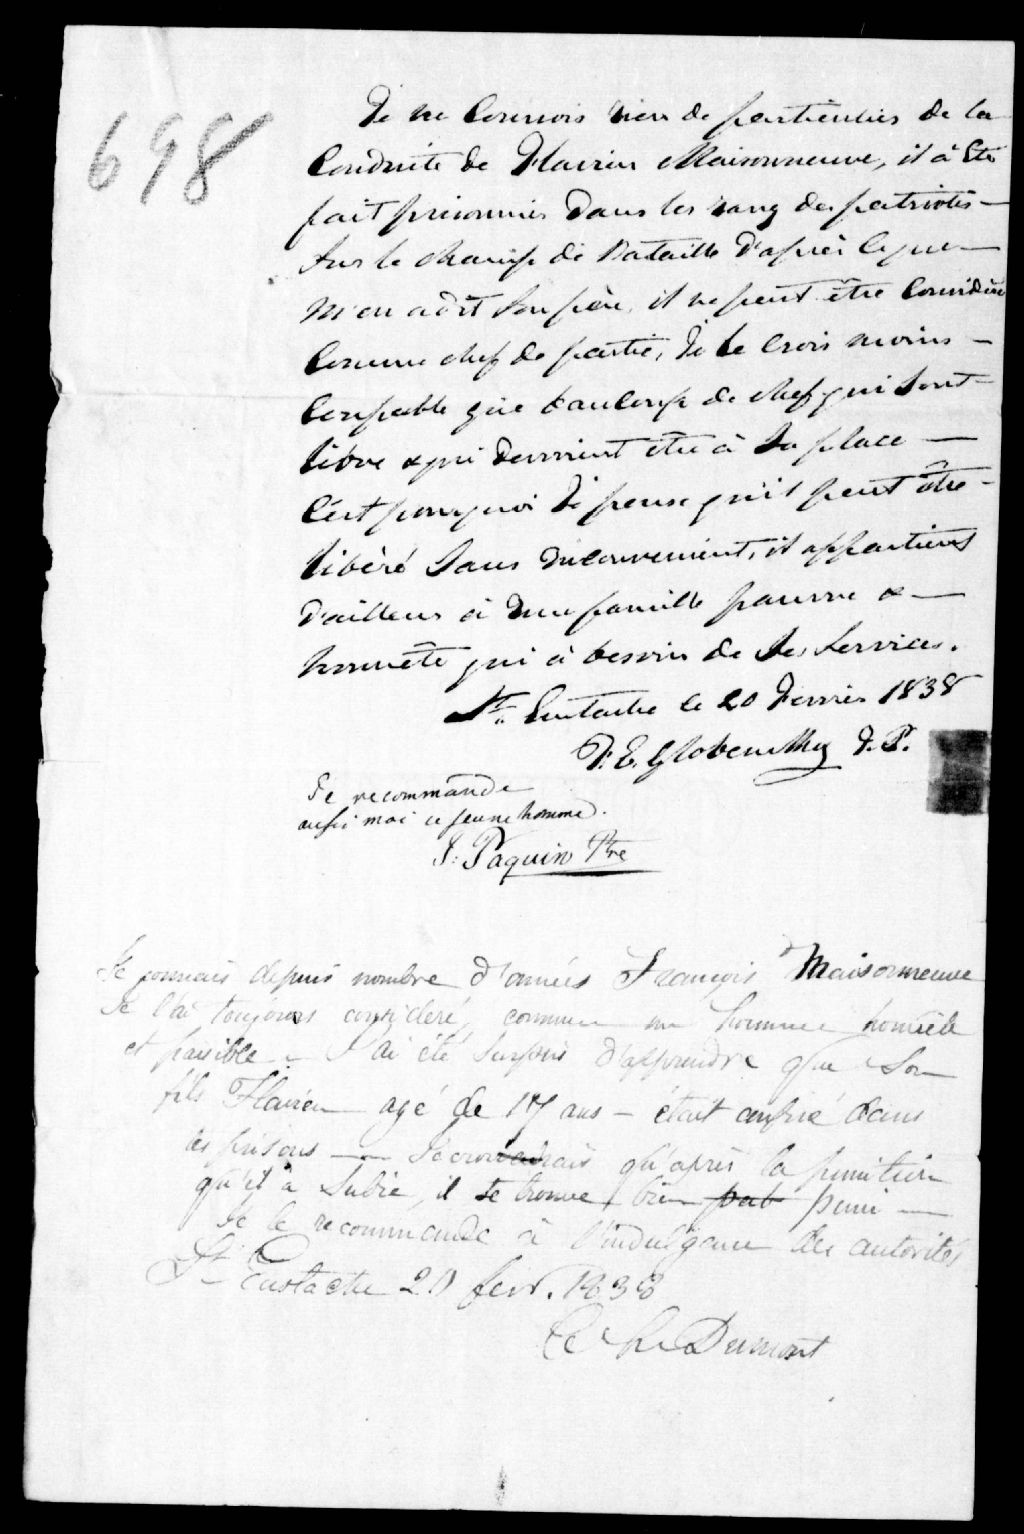 698
Je ne Connois rien de particulier de la
Conduite de Flavien Maisonneuve, il à été
fait prisonnier dans les rang des patriotes —
Sur le champ de Bataille d'après Ceque —
m'en a dit Son père, il ne peut être Considéré
Comme chef de partie, Je le Crois moins —
Coupable que beaucoup de chef qui Sont —
libre & qui devroient être à Sa place —
C'est pourquoi Je pense qu'il peut être —
libéré Sans inconvenient, il appartient
d'ailleurs à une famille pauvre & —
honnête qui à besoin de Ses Services.
St. Eustache le 20 Fevrier 1838
F: E. Globensky J. P.
Je recommande
aussi moi ce jeune homme.
J: Paquin Ptre
Je connais depuis nombre d'années François Maisonneuve
Je l'ai toujours considéré, comme un homme honnête
et paisible — J'ai été Surpris d'apprendre que Son
fils Flavien agé de 17 ans — était dans
les prisons — qu'après la punition
qu'il a Subie, il se trouve bien pub puni —
Je le recommande à l'indulgence des autorités
St Eustache 20 fevr. 1838
Dumont